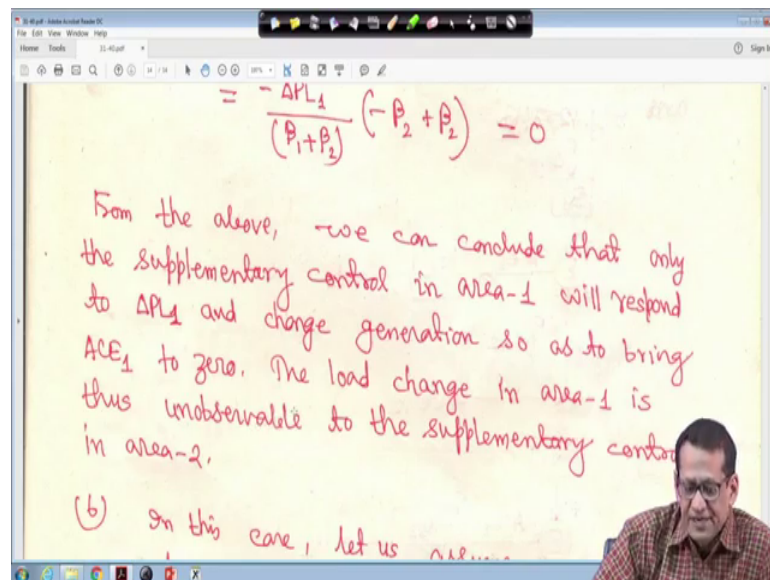 31-40.pdf - Adobe Acrobat Reader DC
File Edit View Window Help
Home Tools 31-40.pdf × Sign In
14 / 14
= -ΔPL1 / (β1+β2) (-β2 + β2) = 0
From the above, we can conclude that only
the supplementary control in area-1 will respond
to ΔPL1 and change generation so as to bring
ACE1 to zero. The load change in area-1 is
thus unobservable to the supplementary
in area-2.
(b) In this case, let us